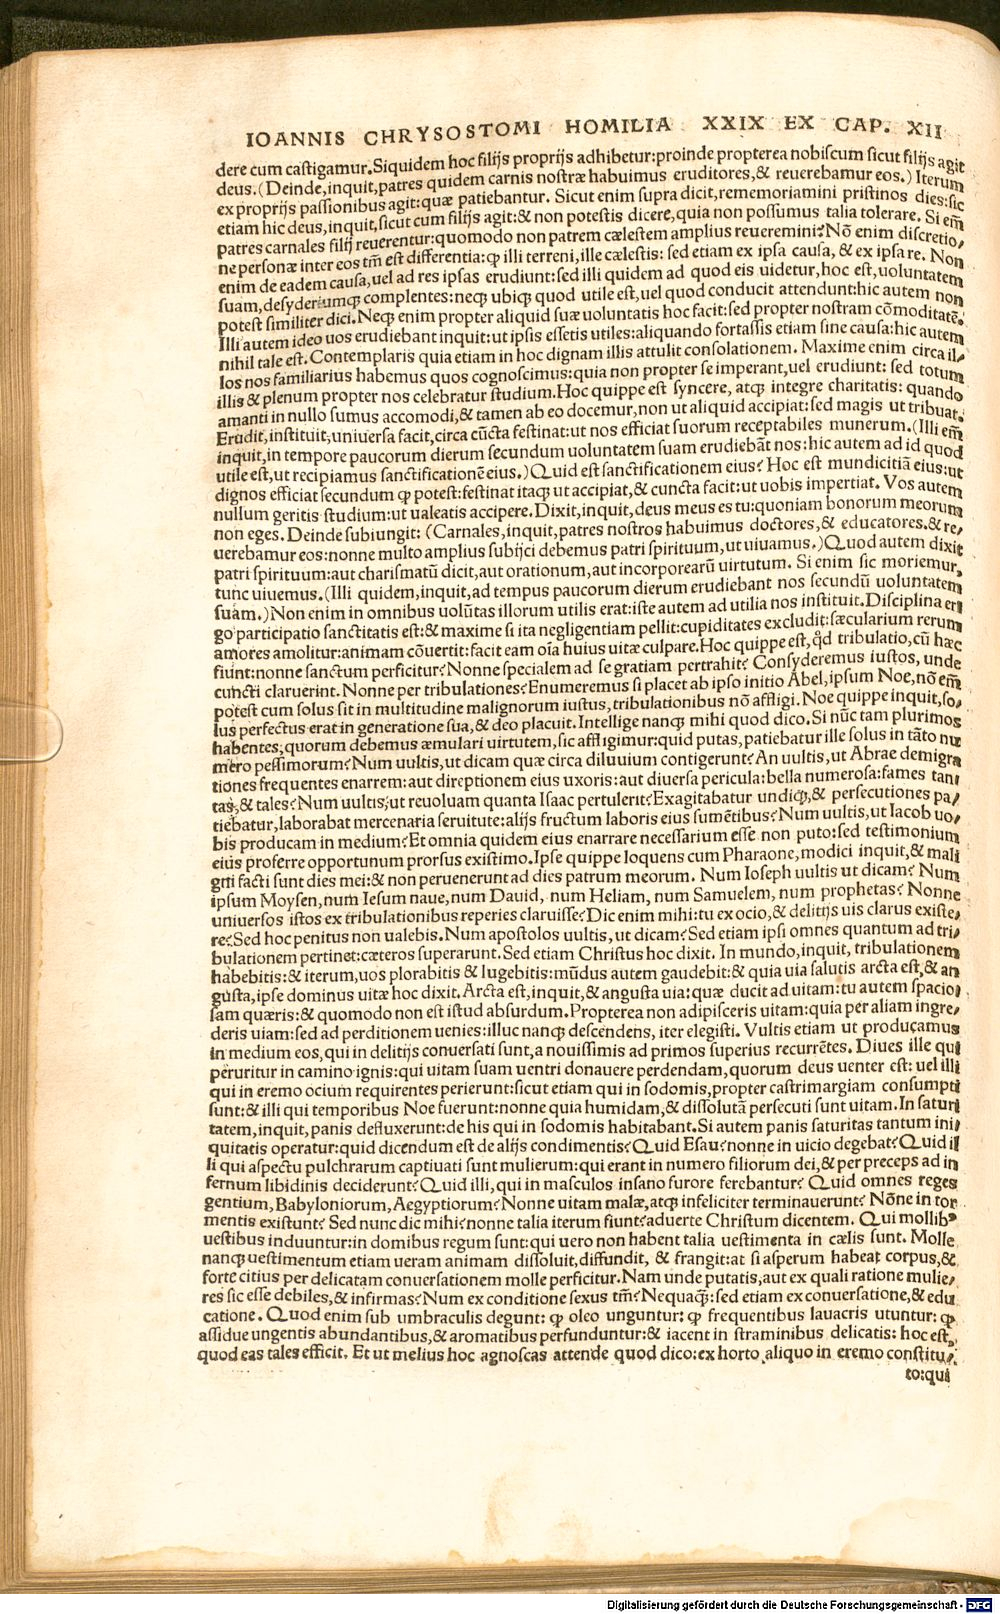 IOANNIS CHRYSOSTOMI HOMILIA XXIX EX CAP. XII
dere cum castigamur. Siquidem hoc filijs proprijs adhibetur: proinde propterea nobiscum sicut filijs agit
deus. (Deinde, inquit, patres quidem carnis nostræ habuimus eruditores, & reuerebamur eos.) Iterum
ex proprijs passionibus agit: quæ patiebantur. Sicut enim supra dicit, rememoriamini pristinos dies: sic
etiam hic deus, inquit, sicut cum filijs agit: & non potestis dicere, quia non possumus talia tolerare. Si em̃
patres carnales filij reuerentur: quomodo non patrem cælestem amplius reueremini? Nõ enim discretio⸗
ne personæ inter eos tm̃ est differentia: ꝙ illi terreni, ille cælestis: sed etiam ex ipsa causa, & ex ipsa re. Non
enim de eadem causa, uel ad res ipsas erudiunt: sed illi quidem ad quod eis uidetur, hoc est, uoluntatem
suam, desyderiumq; complentes: neq; ubiq; quod utile est, uel quod conducit attendunt: hic autem non
potest similiter dici. Neq; enim propter aliquid suæ uoluntatis hoc facit: sed propter nostram cõmoditatẽ.
Illi autem ideo uos erudiebant inquit: ut ipsis essetis utiles: aliquando fortassis etiam sine causa: hic autem
nihil tale est. Contemplaris quia etiam in hoc dignam illis attulit consolationem. Maxime enim circa il⸗
los nos familiarius habemus quos cognoscimus: quia non propter se imperant, uel erudiunt: sed totum
illis & plenum propter nos celebratur studium. Hoc quippe est syncere, atq; integre charitatis: quando
amanti in nullo sumus accomodi, & tamen ab eo docemur, non ut aliquid accipiat: sed magis ut tribuat.
Erudit, instituit, uniuersa facit, circa cũcta festinat: ut nos efficiat suorum receptabiles munerum. (Illi em̃
inquit, in tempore paucorum dierum secundum uoluntatem suam erudiebãt nos: hic autem ad id quod
utile est, ut recipiamus sanctificationẽ eius.) Quid est sanctificationem eius? Hoc est mundicitiã eius: ut
dignos efficiat secundum ꝙ potest: festinat itaq; ut accipiat, & cuncta facit: ut uobis impertiat. Vos autem
nullum geritis studium: ut ualeatis accipere. Dixit, inquit, deus meus es tu: quoniam bonorum meorum
non eges. Deinde subiungit: (Carnales, inquit, patres nostros habuimus doctores, & educatores. & re⸗
uerebamur eos: nonne multo amplius subijci debemus patri spirituum, ut uiuamus.) Quod autem dixit
patri spirituum: aut charismatũ dicit, aut orationum, aut incorporearũ uirtutum. Si enim sic moriemur,
tunc uiuemus. (Illi quidem, inquit, ad tempus paucorum dierum erudiebant nos secundũ uoluntatem
suam.) Non enim in omnibus uolũtas illorum utilis erat: iste autem ad utilia nos instituit. Disciplina er
go participatio sanctitatis est: & maxime si ita negligentiam pellit: cupiditates excludit: sæcularium rerum
amores amolitur: animam cõuertit: facit eam oĩa huius uitæ culpare. Hoc quippe est, qd̃ tribulatio, cũ hæc
fiunt: nonne sanctum perficitur? Nonne specialem ad se gratiam pertrahit? Consyderemus iustos, unde
cuncti claruerint. Nonne per tribulationes? Enumeremus si placet ab ipso initio Abel, ipsum Noe, nõ em̃
potest cum solus sit in multitudine malignorum iustus, tribulationibus nõ affligi. Noe quippe inquit, so⸗
lus perfectus erat in generatione sua, & deo placuit. Intellige nanq; mihi quod dico. Si nũc tam plurimos
habentes, quorum debemus æmulari uirtutem, sic affligimur: quid putas, patiebatur ille solus in tãto nu
mero pessimorum? Num uultis, ut dicam quæ circa diluuium contigerunt? An uultis, ut Abrae demigra
tiones frequentes enarrem: aut direptionem eius uxoris: aut diuersa pericula: bella numerosa: fames tan
tas, & tales? Num uultis, ut reuoluam quanta Isaac pertulerit? Exagitabatur undiq;, & persecutiones pa⸗
tiebatur, laborabat mercenaria seruitute: alijs fructum laboris eius sumẽtibus? Num uultis, ut Iacob uo⸗
bis producam in medium? Et omnia quidem eius enarrare necessarium esse non puto: sed testimonium
eius proferre opportunum prorsus existimo. Ipse quippe loquens cum Pharaone, modici inquit, & mali
gni facti sunt dies mei: & non peruenerunt ad dies patrum meorum. Num Ioseph uultis ut dicam? Num
ipsum Moysen, num Iesum naue, num Dauid, num Heliam, num Samuelem, num prophetas? Nonne
uniuersos istos ex tribulationibus reperies claruisse? Dic enim mihi: tu ex ocio, & delitijs uis clarus existe⸗
re? Sed hoc penitus non ualebis. Num apostolos uultis, ut dicam? Sed etiam ipsi omnes quantum ad tri⸗
bulationem pertinet: cæteros superarunt. Sed etiam Christus hoc dixit. In mundo, inquit, tribulationem
habebitis: & iterum, uos plorabitis & lugebitis: mũdus autem gaudebit: & quia uia salutis arcta est, & an
gusta, ipse dominus uitæ hoc dixit. Arcta est, inquit, & angusta uia: quæ ducit ad uitam: tu autem spacio⸗
sam quæris: & quomodo non est istud absurdum. Propterea non adipisceris uitam: quia per aliam ingre⸗
deris uiam: sed ad perditionem uenies: illuc nanq; descendens, iter elegisti. Vultis etiam ut producamus
in medium eos, qui in delitijs conuersati sunt, a nouissimis ad primos superius recurrẽtes. Diues ille qui
peruritur in camino ignis: qui uitam suam uentri donauere perdendam, quorum deus uenter est: uel illi
qui in eremo ocium requirentes perierunt: sicut etiam qui in sodomis, propter castrimargiam consumpti
sunt: & illi qui temporibus Noe fuerunt: nonne quia humidam, & dissolutã persecuti sunt uitam. In saturi
tatem, inquit, panis defluxerunt: de his qui in sodomis habitabant. Si autem panis saturitas tantum ini⸗
quitatis operatur: quid dicendum est de alijs condimentis? Quid Esau? nonne in uicio degebat? Quid il
li qui aspectu pulchrarum captiuati sunt mulierum: qui erant in numero filiorum dei, & per preceps ad in
fernum libidinis deciderunt? Quid illi, qui in masculos insano furore ferebantur? Quid omnes reges
gentium, Babyloniorum, Aegyptiorum? Nonne uitam malæ, atq; infeliciter terminauerunt? Nõne in tor
mentis existunt? Sed nunc dic mihi? nonne talia iterum fiunt? aduerte Christum dicentem. Qui mollibꝰ
uestibus induuntur: in domibus regum sunt: qui uero non habent talia uestimenta in cælis sunt. Molle
nanq; uestimentum etiam ueram animam dissoluit, diffundit, & frangit: at si asperum habeat corpus, &
forte citius per delicatam conuersationem molle perficitur. Nam unde putatis, aut ex quali ratione mulie⸗
res sic esse debiles, & infirmas? Num ex conditione sexus tm̃? Nequaq̃: sed etiam ex conuersatione, & edu
catione. Quod enim sub umbraculis degunt: ꝙ oleo unguntur: ꝙ frequentibus lauacris utuntur: ꝙ
assidue ungentis abundantibus, & aromatibus perfunduntur: & iacent in straminibus delicatis: hoc est,
quod eas tales efficit. Et ut melius hoc agnoscas attende quod dico: ex horto aliquo in eremo constitu⸗
to: qui
Digitalisierung gefördert durch die Deutsche Forschungsgemeinschaft - DFG